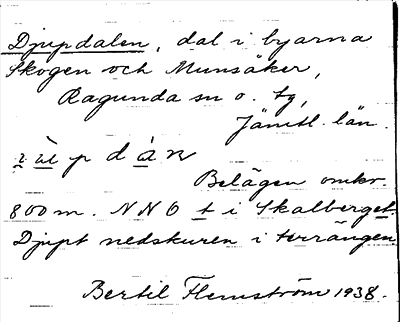 Djupdalen, dal i byarna
Skogen och Munsåker,
Ragunda sn o. tg,
Jämtl. län.
Belägen omkr.
800 m. NNO t i Skalberget.
Djupt nedskuren i terrängen
Bertil Flemström 1938.